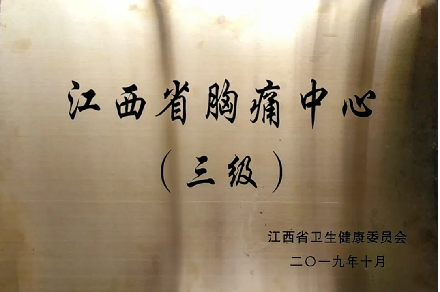 江西省胸痛中心
（三级）
江西省卫生健康委员会
二〇一九年十月